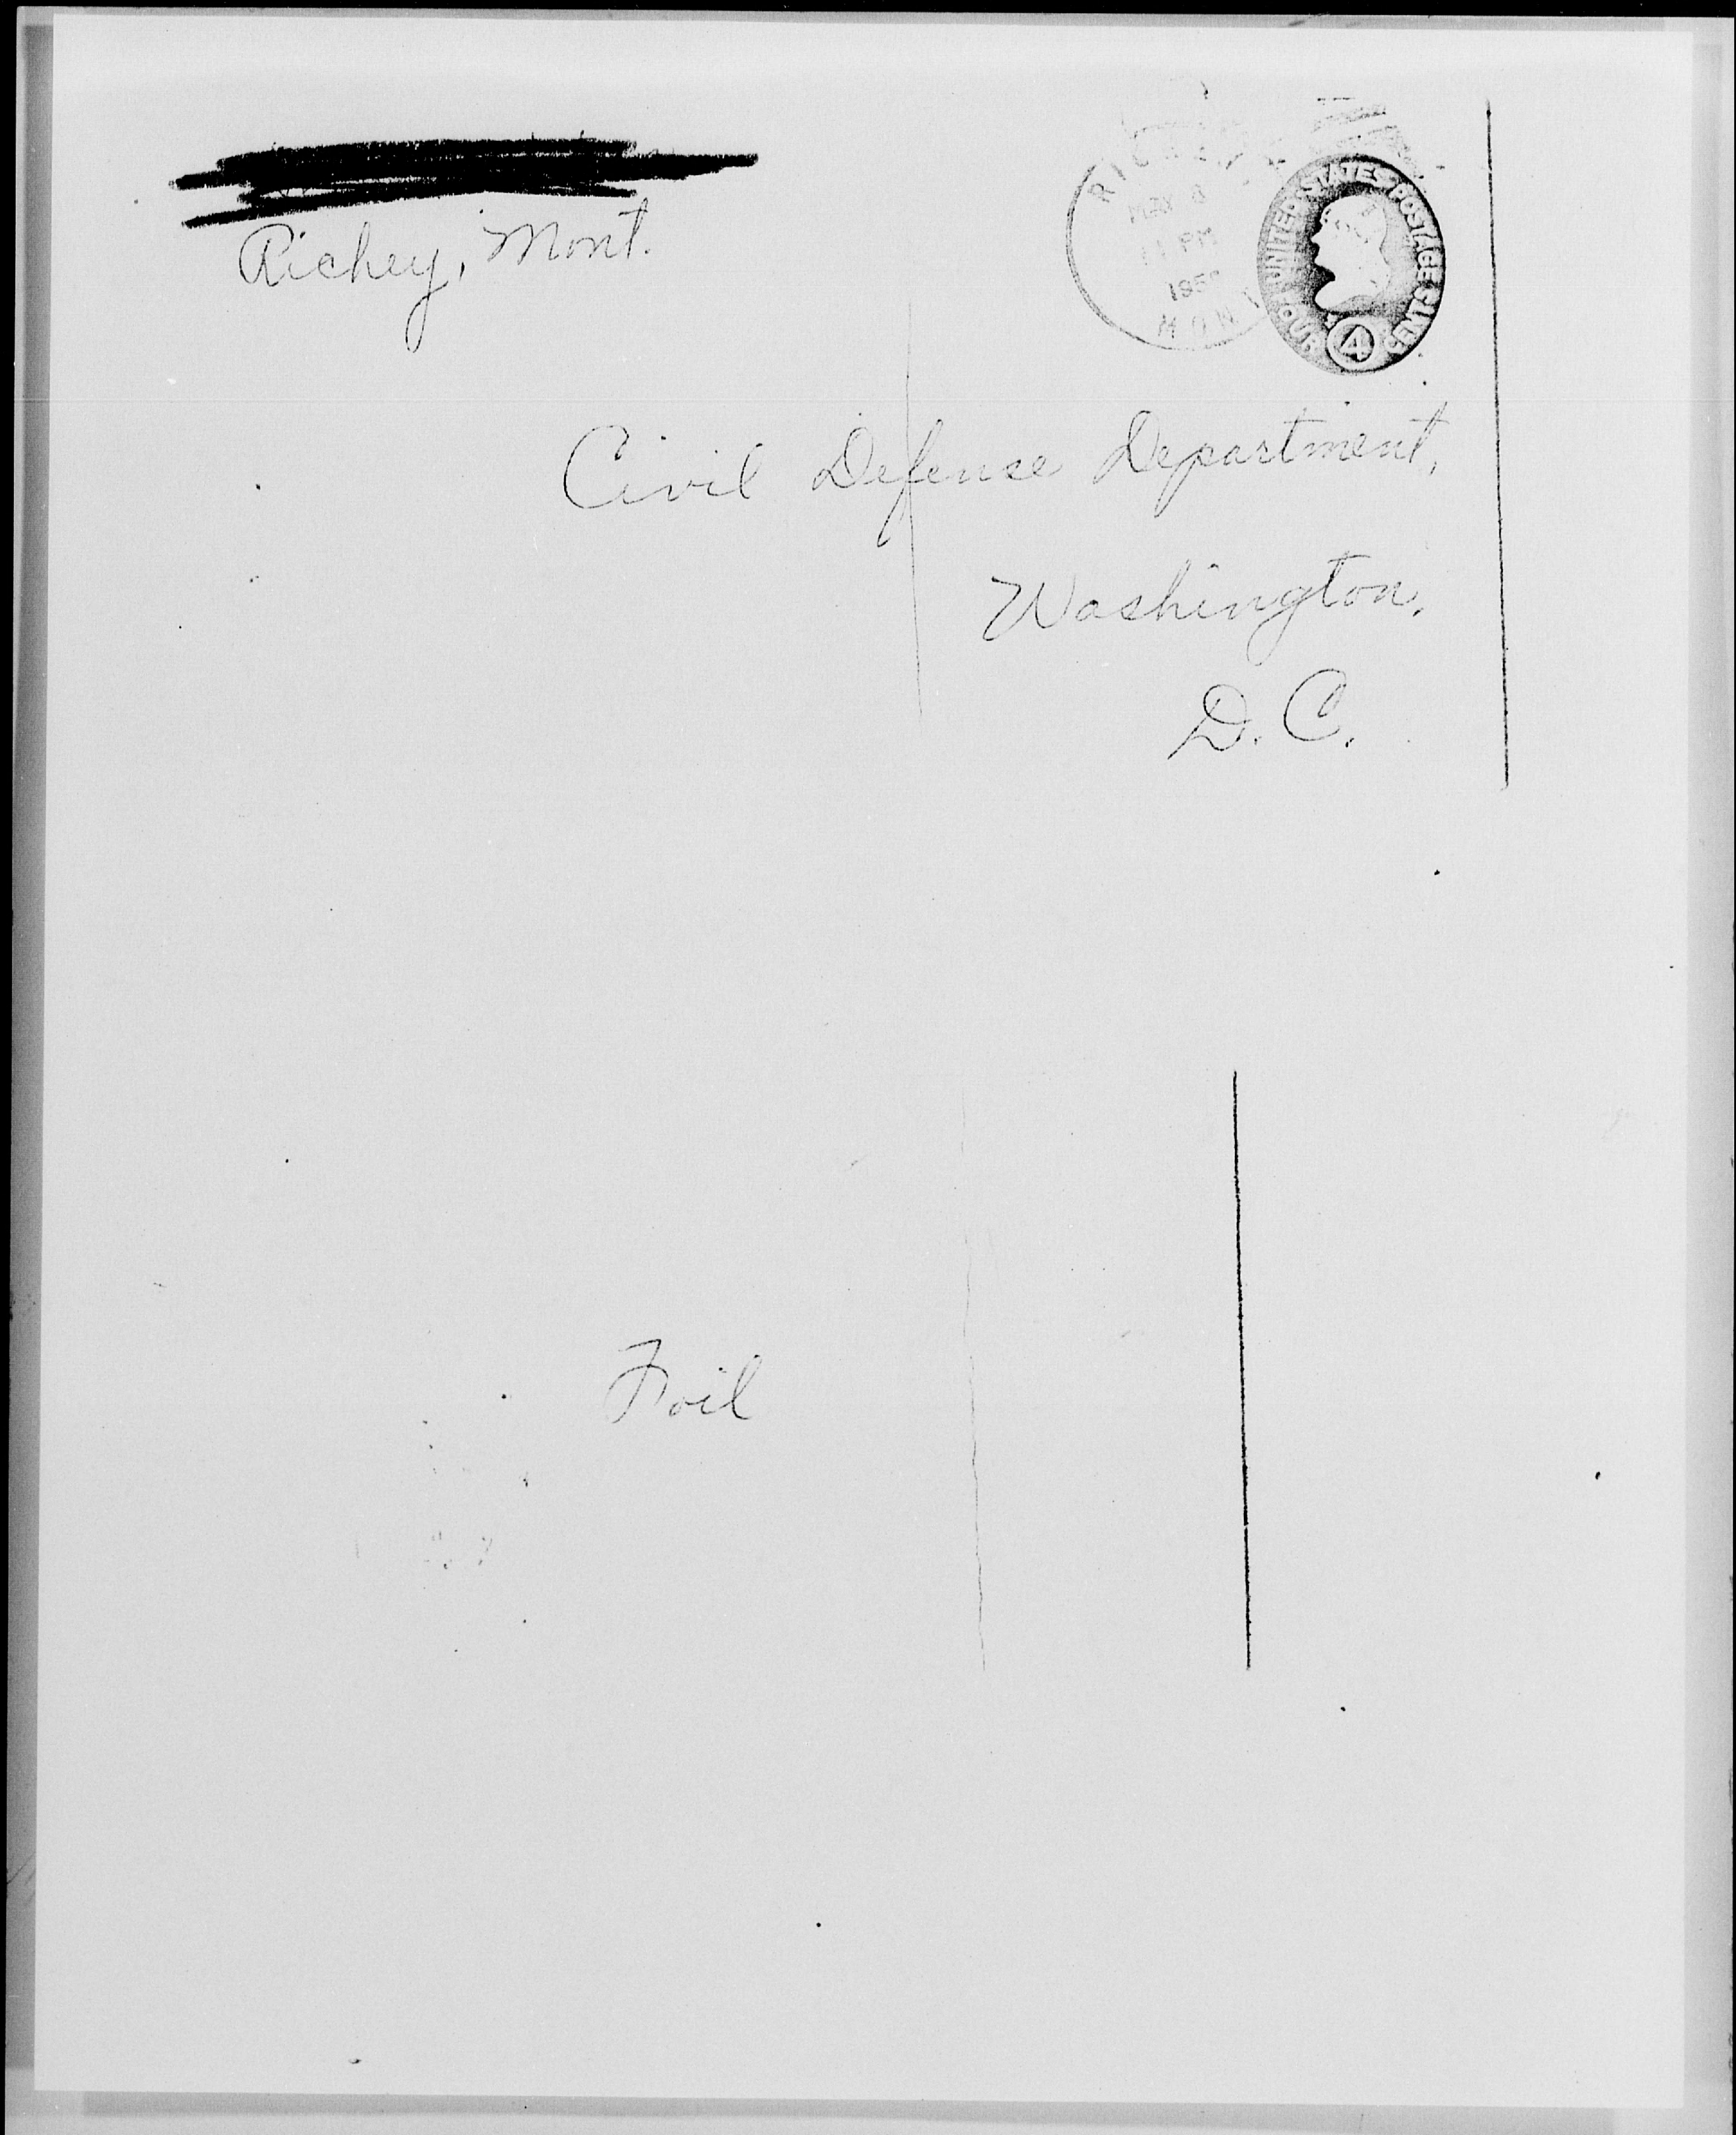 Richey, Mont.
RICHEY
11 PM
MONT
UNITED STATES POSTAGE
FOUR CENTS
4
Civil Defense Department,
Washington,
D. C.
Foil